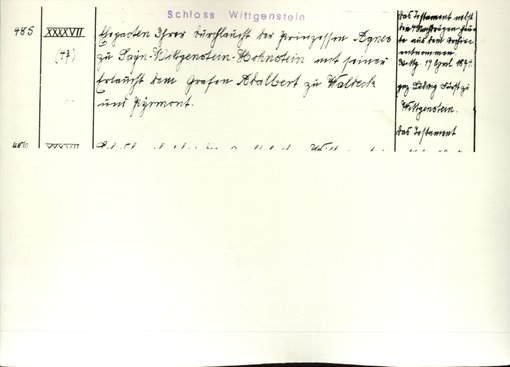 Schloss Wittgenstein
485 XXXXVII Ehepacten Ihrer Durchlaucht der Prinzessin Agnes
(47) zu Sayn-Wittgenstein-Hohnstein mit seiner
Erlaucht dem Grafen Adalbert zu Waldeck
und Pyrmont.
das Testament nebst
den Nachträgen
aus dem Archiv
entnommen.
19 April 1894.
gez. Ludwig Fürst zu
Wittgenstein.
das Testament